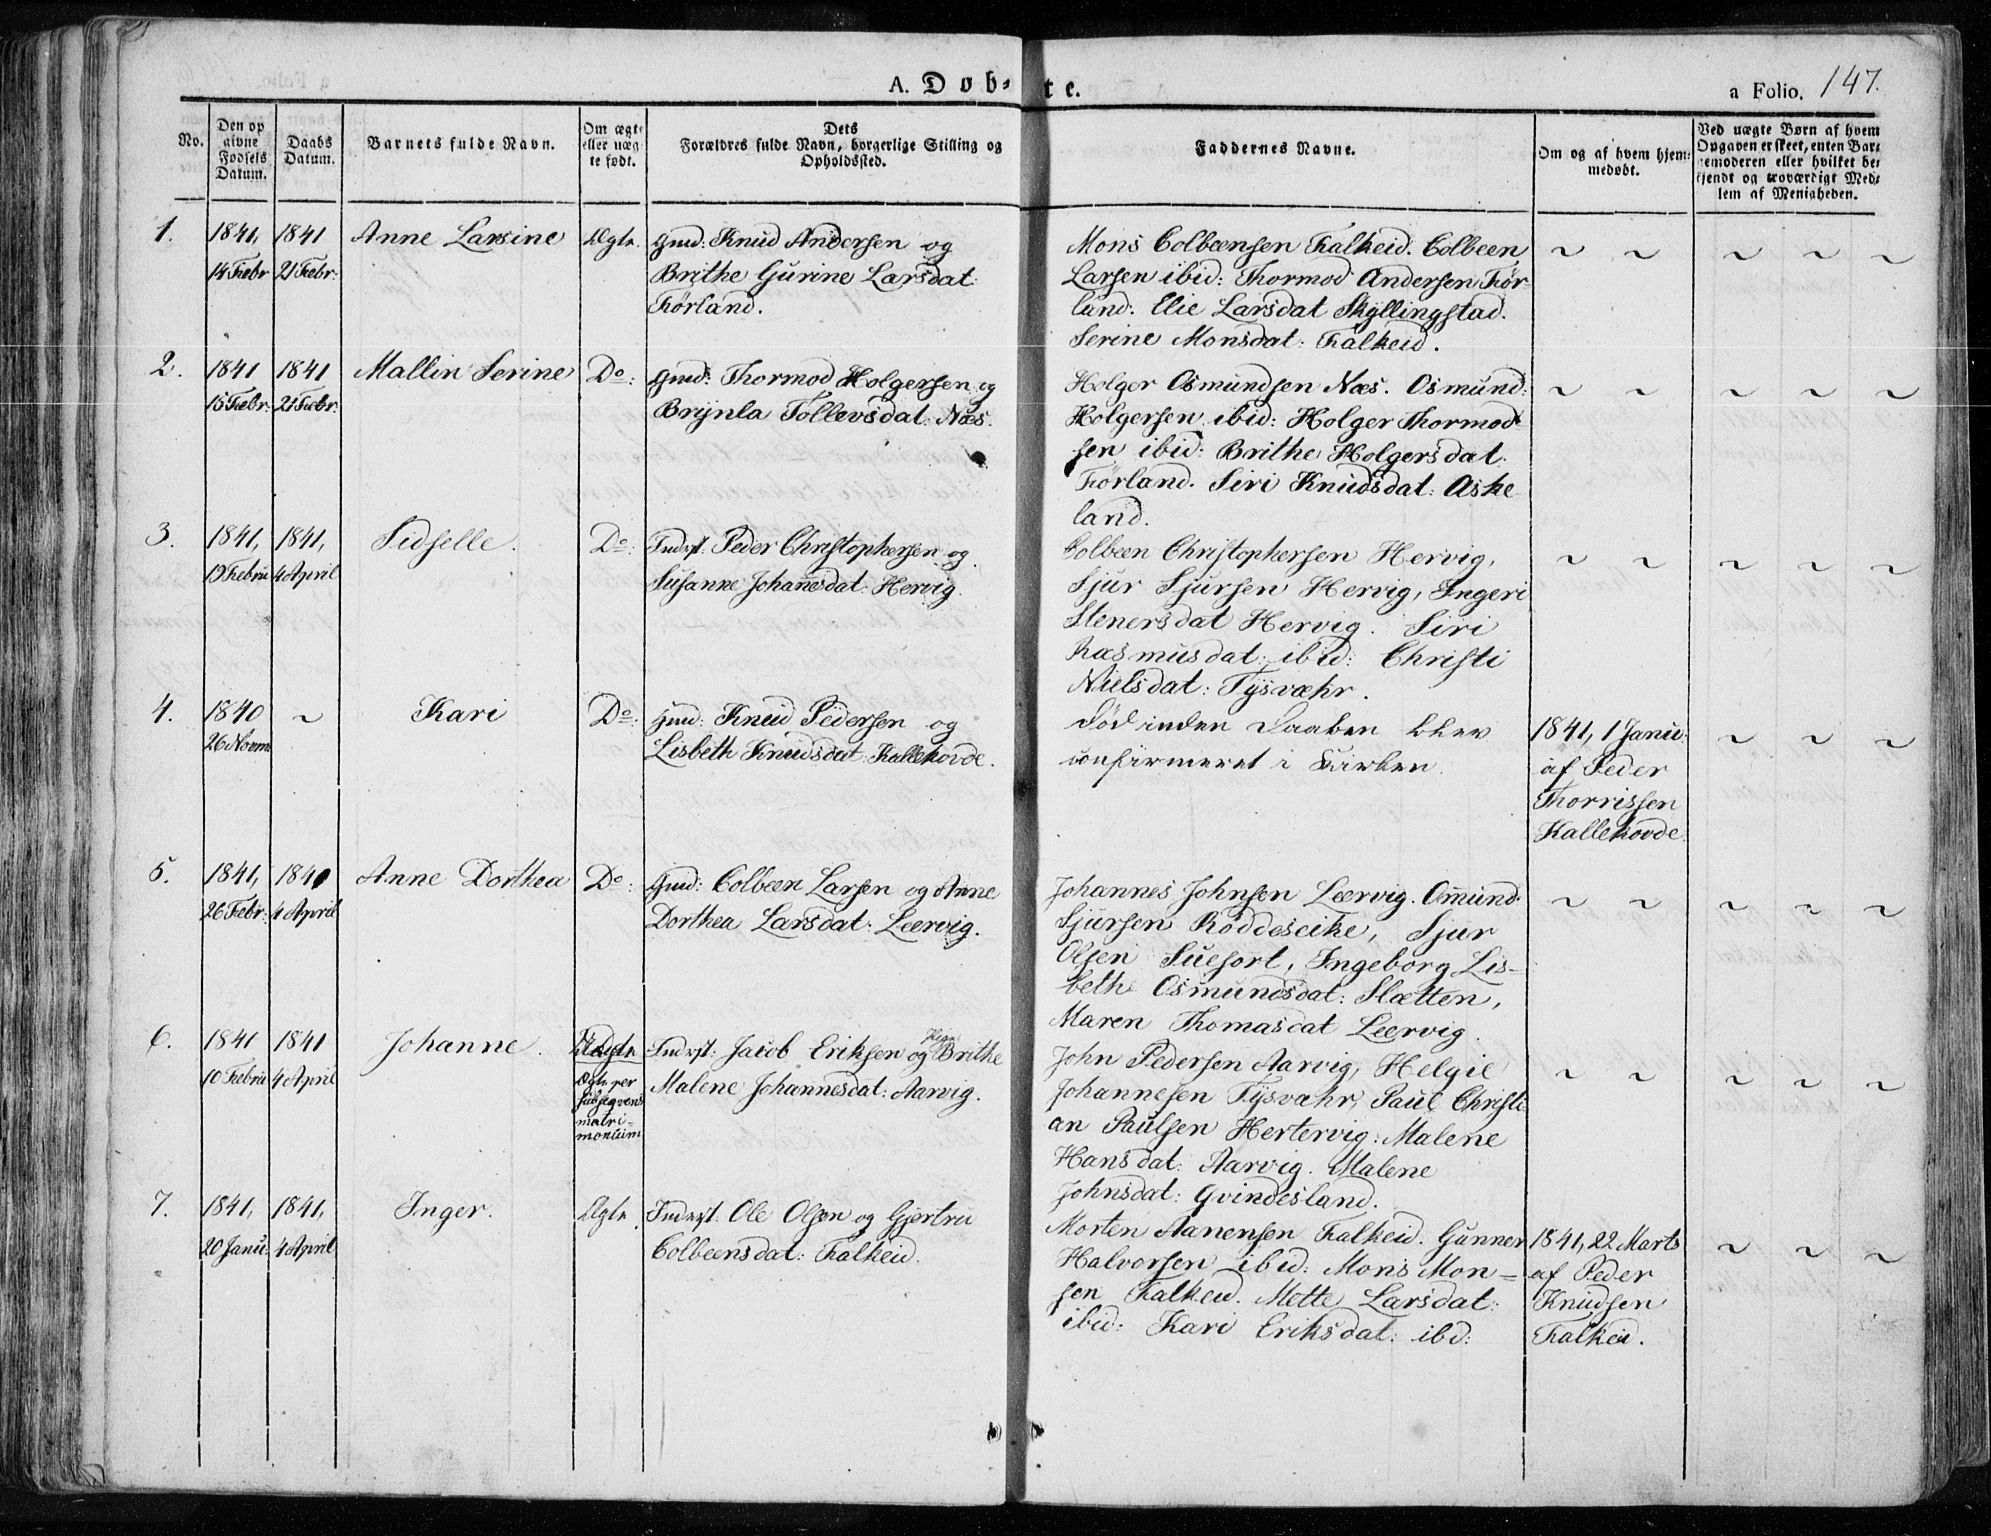 A. Døb-te.
a Folio. 147.
No.
Den op
givne
Fødsels
Datum.
Daabs
Datum.
Barnets fulde Navn.
Om ægte
eller uæg
te født.
Dets
Forældres fulde Navn, borgerlige Stilling og
Opholdssted.
Faddernes Navne.
Om og af hvem hjem-
medøbt.
Ved uægte Børn af hvem
Opgaven er skeet, enten Bar-
nemoderen eller hvilket be-
kjendt og troværdigt Med-
lem af Menigheden.
1.
1841,
14 Febr
1841
21 Febr:
Anne Larsine
Ægte.
Gmd: Knud Andersen og
Brithe Gurine Larsdat:
Førland.
Mons Colbeensen Falkeid. Colbeen
Larsen ibid: Thormod Andersen Før-
land. Elie Larsdat Skyllingstad.
Serine Monsdat: Falkeid.
~ ~ ~ ~ ~
2.
1841
15 Febr:
1841
21 Febr:
Mallin Serine
Do:
Gmd: Thormod Holgersen og
Brynla Tollevsdat: Næs.
Holger Osmundsen Næs. Osmund
Holgersen ibid: Holger Thormod-
sen ibid: Brithe Holgersdat
Førland. Siri Knudsdat: Aske
land.
~ ~ ~ ~ ~
3.
1841,
19 Febru
1841,
4 April
Sidselle.
Do:
Inderst: Peder Christophersen og
Susanne Johannesdat: Hervig.
Colbeen Christophersen Hervig,
Sjur Sjursen Hervig, Ingeri
Stenersdat Hervig. Siri
Rasmusdat: ibid: Christi
Nielsdat: Tysvæhr.
~ ~ ~ ~ ~
4.
1840
26 Novm
~
Kari
Do:
Gmd: Knud Pedersen og
Lisbeth Knudsdat: Kallekovde.
Død inden Daaben blev
confirmeret i Kirken.
1841, 1 Janu:
af Peder
Thorrissen
Kallekovde.
~ ~ ~
5.
1841,
26 Febr:
1841
4 April
Anne Dorthea
Do:
Gmd: Colbeen Larsen og Anne
Dorthea Larsdat: Leervig.
Johannes Johnsen Leervig. Omund
Sjursen Røddeseike, Sjur
Olsen Suesort, Ingeborg Lis-
beth Osmundsdat: Slætten,
Maren Thomasdat Leervig.
~ ~ ~ ~ ~
6.
1841
10 Febru
1841
4 April
Johanne.
Uægte
Ægte per
subseqvens
matri-
monium
Inderst: Jacob Eriksen og Pige: Brithe
Malene Johannesdat: Aarvig.
John Pedersen Aarvig, Helgie
Johannesen Tysvæhr, Paul Christi
an Paulsen Hertervig: Malene
Hansdat: Aarvig. Malene
Johnsdat: Gvindesland.
~ ~ ~ ~ ~
7.
1841,
20 Janu:
1841,
4 April
Inger.
Ægte.
Inderst: Ole Olsen og Gjertru
Colbeensdat: Falkeid.
Morten Aanensen Falkeid. Gunner
Halvorsen ibid: Mons Mon-
sen Falkeid. Mette Larsdat:
ibid: Kari Eriksdat: ibd:
1841, 22 Marts
af Peder
Knudsen
Falkeid.
~ ~ ~